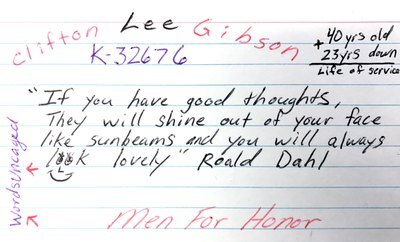 Clifton Lee Gibson
K-32676
40 yrs old
+ 23 yrs down
Life of service
"If you have good thoughts,
They will shine out of your face
like sunbeams and you will always
look lovely" Roald Dahl
WordsUncaged
Men For Honor